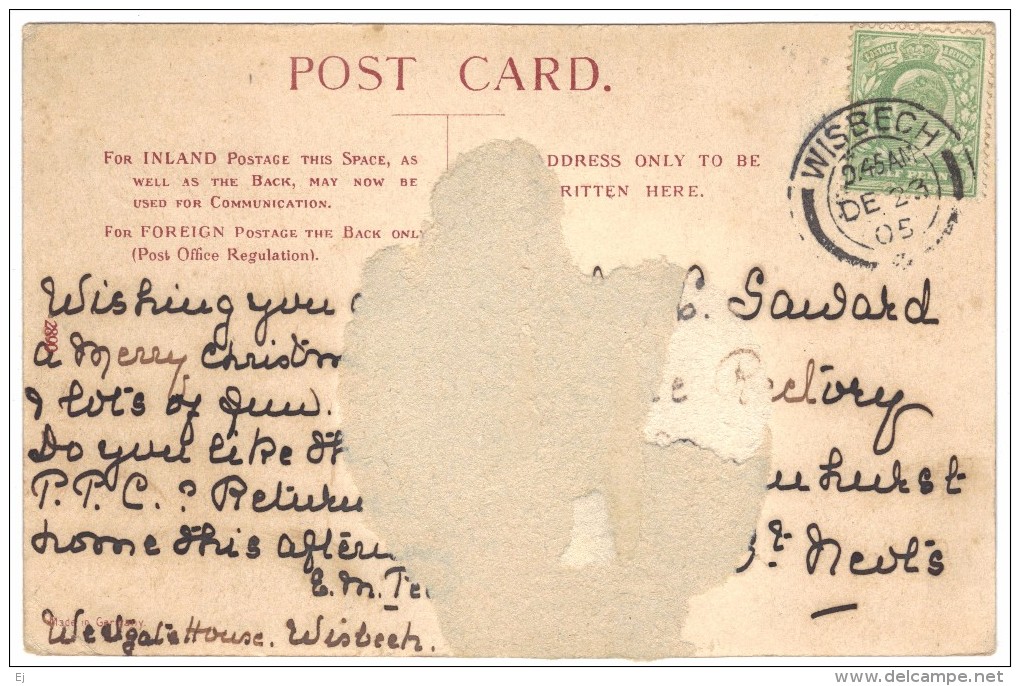 POST CARD.
FOR INLAND POSTAGE THIS SPACE, AS
WELL AS THE BACK, MAY NOW BE
USED FOR COMMUNICATION.
FOR FOREIGN POSTAGE THE BACK ONLY
(Post Office Regulation).
DDRESS ONLY TO BE
RITTEN HERE.
POSTAGE
WISBECH
DE 23
05
2890
Wishing you
a Merry Christm
& lots of fun.
Do you like th
P.P.C.? Return
home this aftern
E. M. Te
House. Wisbech.
Made in Germany.
C. Saward
e Rectory
nhurst
St Neots
delcampe.net